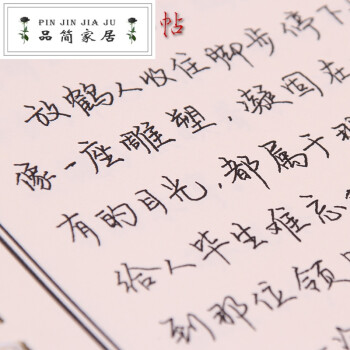 PIN JIN JIA JU
品简家居
帖
放鹤人收住脚步停下
像一座雕塑,凝固在
有的目光,都属于
给人毕生难忘
到那位领